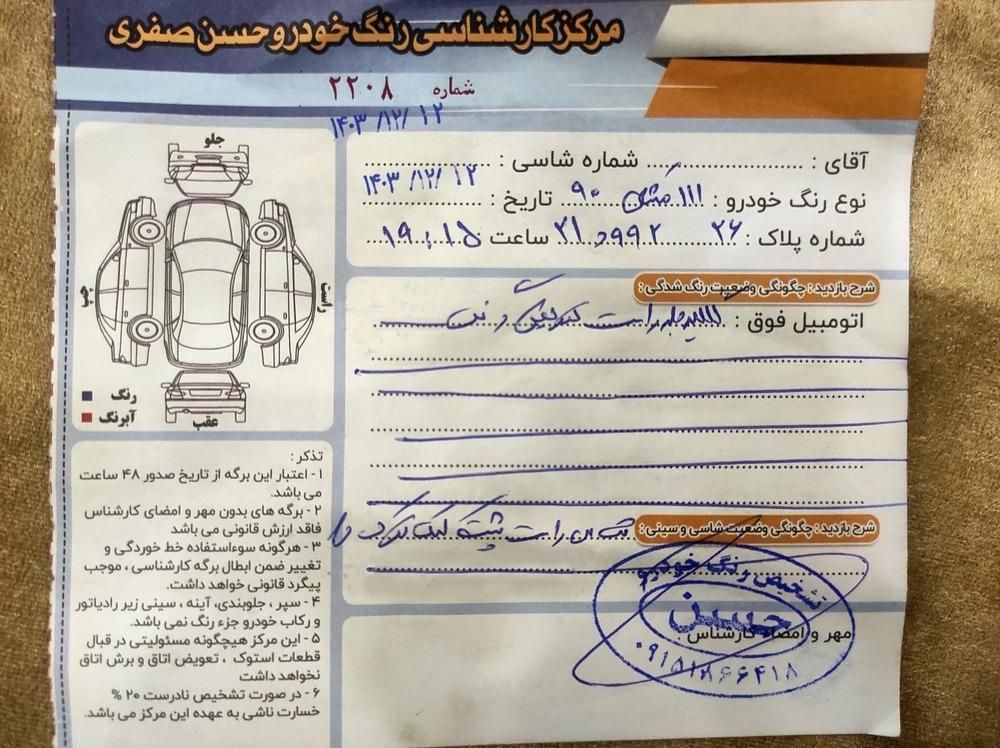 مرکز کارشناسی رنگ خودرو حسن صفری
شماره ۲۲۰۸
۱۴۰۳/۱۲/۱۲
آقای : ............ شماره شاسی : ............
نوع رنگ خودرو : ااا مشکی ۹۰ تاریخ : ۱۴۰۳/۱۲/۱۲
شماره پلاک : ۲۶ ۹۹۲ و ۲۱ ساعت ۱۹:۱۵
شرح بازدید : چگونگی وضعیت رنگ شدگی :
اتومبیل فوق : گلگیر جلو راست
شرح بازدید : چگونگی وضعیت شاسی و سینی :
راست پشت
تشخیص رنگ خودرو
حسن
مهر و امضاء کارشناس :
۰۹۱۵۱۸۶۶۴۱۸
جلو
چپ
راست
عقب
رنگ
آبرنگ
تذکر :
۱ - اعتبار این برگه از تاریخ صدور ۴۸ ساعت
می باشد.
۲ - برگه های بدون مهر و امضای کارشناس
فاقد ارزش قانونی می باشد
۳ - هرگونه سوءاستفاده خط خوردگی و
تغییر ضمن ابطال برگه کارشناسی ، موجب
پیگرد قانونی خواهد داشت.
۴ - سپر ، جلوبندی، آینه ، سینی زیر رادیاتور
و رکاب خودرو جزء رنگ نمی باشد.
۵ - این مرکز هیچگونه مسئولیتی در قبال
قطعات استوک ، تعویض اتاق و برش اتاق
نخواهد داشت
۶ - در صورت تشخیص نادرست ۲۰ %
خسارت ناشی به عهده این مرکز می باشد.